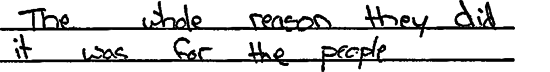 The whole reason they did
it was for the people